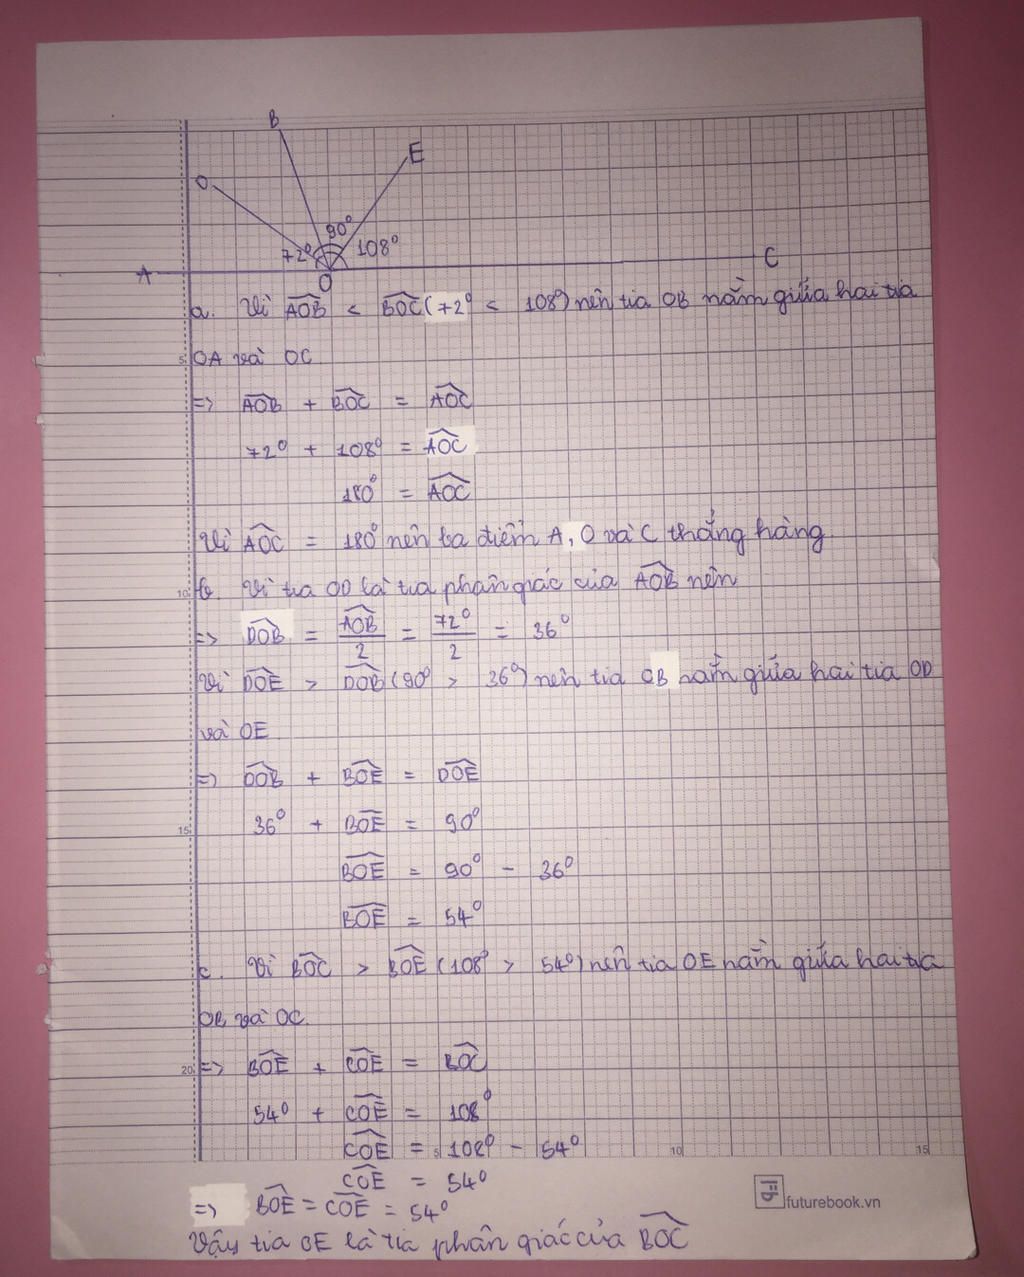 B
E
O
90⁰
72⁰
108⁰
A
O
C
a. Vì AOB < BOC (72⁰ < 108⁰) nên tia OB nằm giữa hai tia
5
OA và OC
=> AOB + BOC = AOC
72⁰ + 108⁰ = AOC
180⁰ = AOC
Vì AOC = 180⁰ nên ba điểm A, O và C thẳng hàng
10
b Vì tia OD là tia phân giác của AOB nên
=> DOB = AOB/2 = 72⁰/2 = 36⁰
Vì DOE > DOB (90⁰ > 36⁰) nên tia OB nằm giữa hai tia OD
và OE
=> DOB + BOE = DOE
15
36⁰ + BOE = 90⁰
BOE = 90⁰ - 36⁰
BOE = 54⁰
c. Vì BOC > BOE (108⁰ > 54⁰) nên tia OE nằm giữa hai tia
OB và OC
20
=> BOE + COE = BOC
54⁰ + COE = 108⁰
COE = 108⁰ - 54⁰
5 10 15
COE = 54⁰
=> BOE = COE = 54⁰
futurebook.vn
Vậy tia OE là tia phân giác của BOC